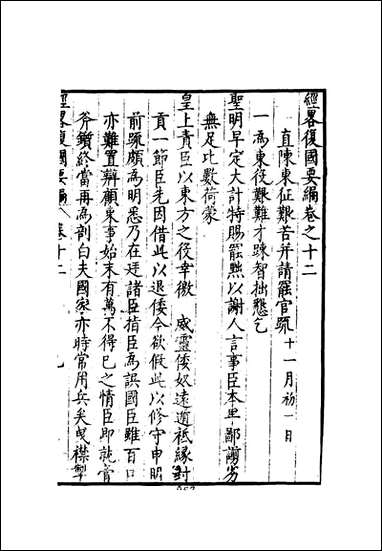 經畧復國要編卷之十二
直陳東征艱苦并請罷官疏 十一月初一日
一為東役艱難才踈智拙懇乞
聖明早定大計特賜罷黜以謝人言事臣本卑鄙謭劣
無足比數荷蒙
皇上責臣以東方之役幸徼 威靈倭奴遠遁祗緣封
貢一節臣先因借此以退倭今欲假此以修守申明
前疏頗為明悉乃在廷諸臣指臣為誤國臣雖百口
亦難置辯顧其事始末有萬不得已之情臣即就膏
斧鑕終當再為剖白夫國家亦時常用兵矣曳襟掣
經畧復國要編 卷十二